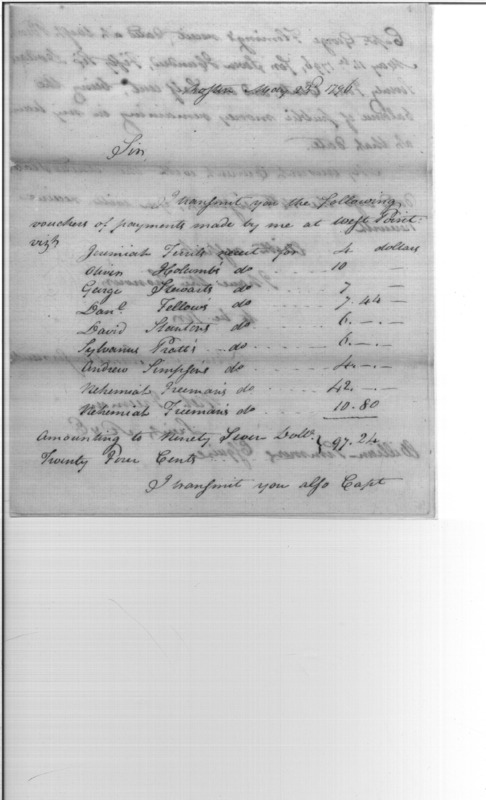 Boston May 23d 1796
Sir,
I transmit you the following
vouchers of payments made by me at West Point
vizt
Jeremiah receit for 4 dollars
Oliver Holcombs do 10 —
George Stewarts do 7 —
Danl. Fellows do 7.44 —
David Stantons do 6.—.—
Sylvanus Pratts do 6.—.—
Andrew Simpsons do 4.—.—
Nehemiah Freemans do 42.—.—
Nehemiah Freemans do 10.80
Amounting to Ninety Seven Dolls. } 97.24
Twenty Four Cents
I transmit you also Capt